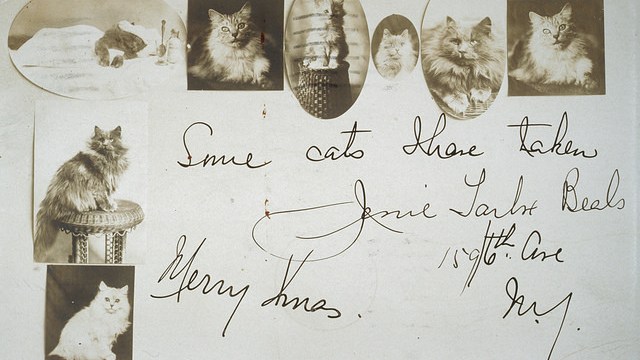 Some cats I have taken
Jessie Tarbox Beals
159 6th. Ave
Merry Xmas.
N.Y.